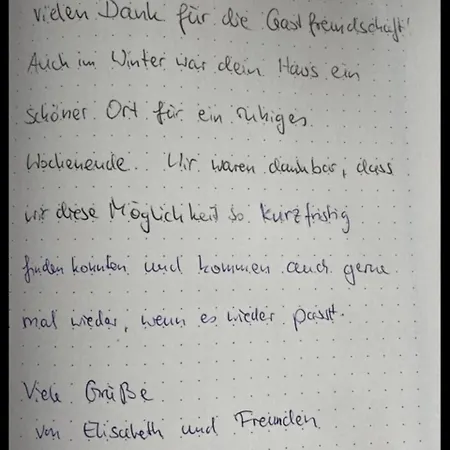 vielen Dank für die Gastfreundschaft!
Auch im Winter war dein Haus ein
schöner Ort für ein ruhiges
Wochenende. Wir waren dankbar, dass
wir diese Möglichkeit so kurzfristig
finden konnten und kommen auch gerne
mal wieder, wenn es wieder passt.
Viele Grüße
von Elisabeth und Freunden